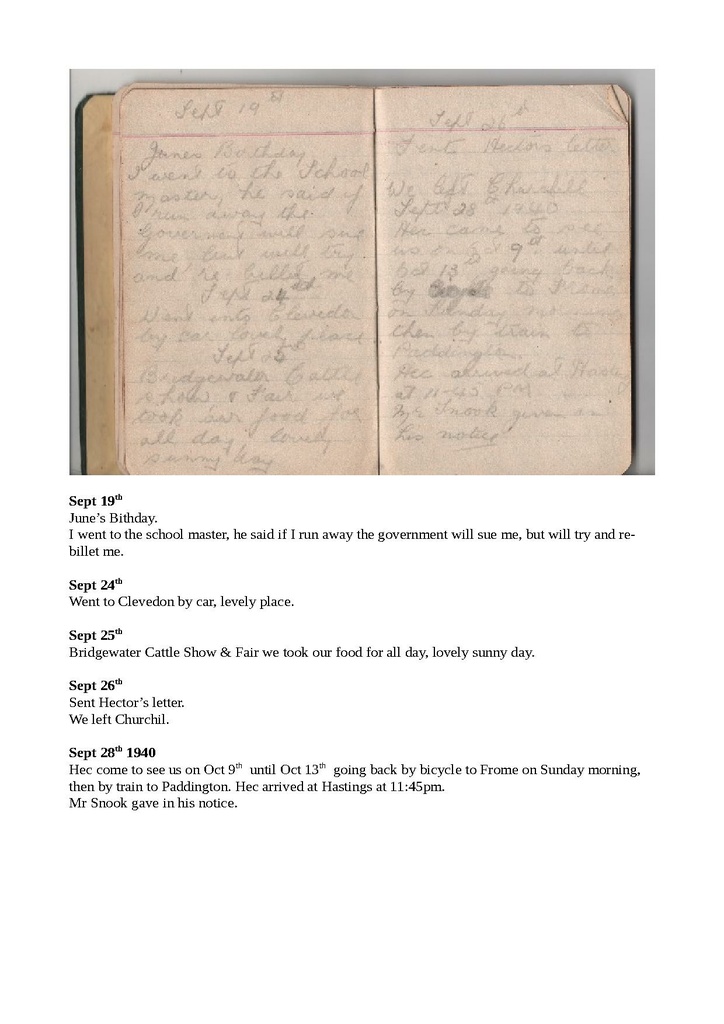 Sept 19th
Junes Birthday
I went to the School
master, he said if
I run away the
Government will sue
me but will try
and re-billet me
Sept 24th
Went into Clevedon
by car lovely place
Sept 25th
Bridgewater Cattle
show & Fair we
took our food for
all day lovely
sunny day
Sept 26th
Sent Hectors letter
We left Churchill
Sept 28th 1940
Hec came to see
us on Oct 9th until
Oct 13th going back
by to Frome
on Sunday morning
then by train to
Paddington.
Hec arrived at
at 11-45 PM
Mr Snook given in
his notice
Sept 19th
June’s Bithday.
I went to the school master, he said if I run away the government will sue me, but will try and re-
billet me.
Sept 24th
Went to Clevedon by car, levely place.
Sept 25th
Bridgewater Cattle Show & Fair we took our food for all day, lovely sunny day.
Sept 26th
Sent Hector’s letter.
We left Churchil.
Sept 28th 1940
Hec come to see us on Oct 9th until Oct 13th going back by bicycle to Frome on Sunday morning,
then by train to Paddington. Hec arrived at Hastings at 11:45pm.
Mr Snook gave in his notice.